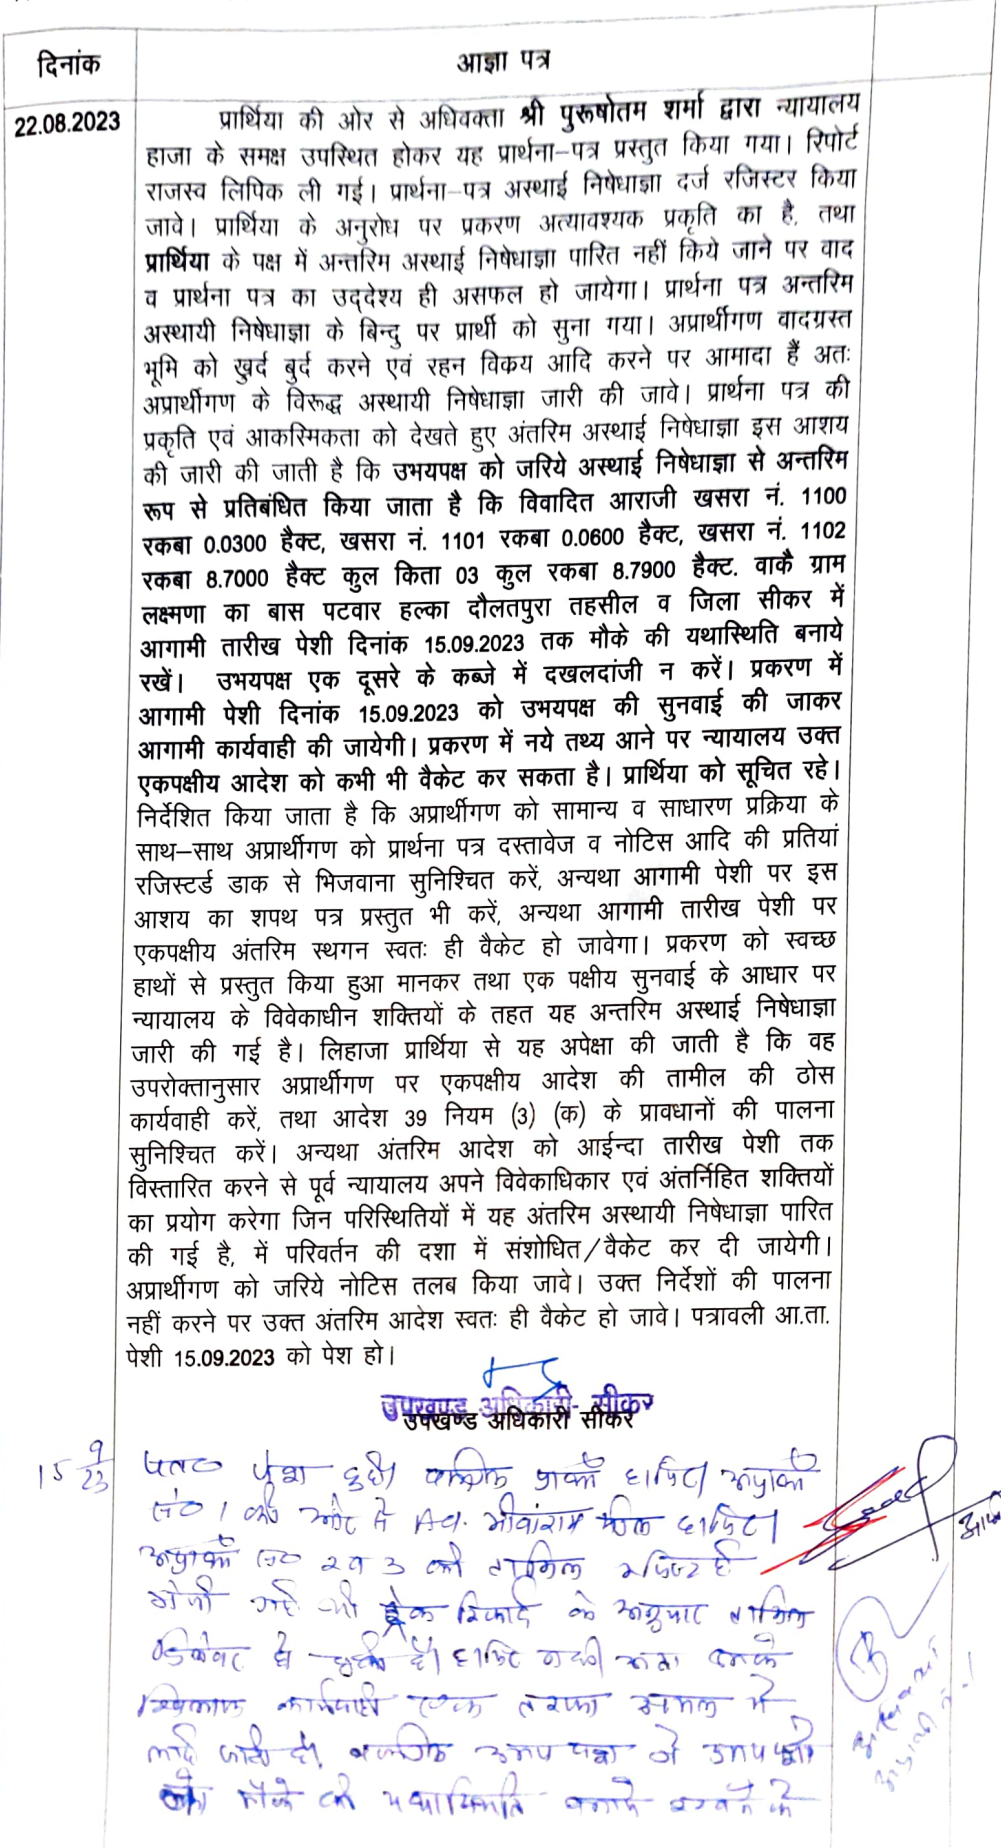 दिनांक
आज्ञा पत्र
22.08.2023
प्रार्थिया की ओर से अधिवक्ता श्री पुरूषोतम शर्मा द्वारा न्यायालय
हाजा के समक्ष उपस्थित होकर यह प्रार्थना–पत्र प्रस्तुत किया गया। रिपोर्ट
राजस्व लिपिक ली गई। प्रार्थना–पत्र अस्थाई निषेधाज्ञा दर्ज रजिस्टर किया
जावे। प्रार्थिया के अनुरोध पर प्रकरण अत्यावश्यक प्रकृति का है, तथा
प्रार्थिया के पक्ष में अन्तरिम अस्थाई निषेधाज्ञा पारित नहीं किये जाने पर वाद
व प्रार्थना पत्र का उद्देश्य ही असफल हो जायेगा। प्रार्थना पत्र अन्तरिम
अस्थायी निषेधाज्ञा के बिन्दु पर प्रार्थी को सुना गया। अप्रार्थीगण वादग्रस्त
भूमि को खुर्द बुर्द करने एवं रहन विकय आदि करने पर आमादा हैं अतः
अप्रार्थीगण के विरूद्ध अस्थायी निषेधाज्ञा जारी की जावे। प्रार्थना पत्र की
प्रकृति एवं आकस्मिकता को देखते हुए अंतरिम अस्थाई निषेधाज्ञा इस आशय
की जारी की जाती है कि उभयपक्ष को जरिये अस्थाई निषेधाज्ञा से अन्तरिम
रूप से प्रतिबंधित किया जाता है कि विवादित आराजी खसरा नं. 1100
रकबा 0.0300 हैक्ट, खसरा नं. 1101 रकबा 0.0600 हैक्ट, खसरा नं. 1102
रकबा 8.7000 हैक्ट कुल किता 03 कुल रकबा 8.7900 हैक्ट. वाकै ग्राम
लक्ष्मणा का बास पटवार हल्का दौलतपुरा तहसील व जिला सीकर में
आगामी तारीख पेशी दिनांक 15.09.2023 तक मौके की यथास्थिति बनाये
रखें। उभयपक्ष एक दूसरे के कब्जे में दखलदांजी न करें। प्रकरण में
आगामी पेशी दिनांक 15.09.2023 को उभयपक्ष की सुनवाई की जाकर
आगामी कार्यवाही की जायेगी। प्रकरण में नये तथ्य आने पर न्यायालय उक्त
एकपक्षीय आदेश को कभी भी वैकेट कर सकता है। प्रार्थिया को सूचित रहे।
निर्देशित किया जाता है कि अप्रार्थीगण को सामान्य व साधारण प्रक्रिया के
साथ–साथ अप्रार्थीगण को प्रार्थना पत्र दस्तावेज व नोटिस आदि की प्रतियां
रजिस्टर्ड डाक से भिजवाना सुनिश्चित करें, अन्यथा आगामी पेशी पर इस
आशय का शपथ पत्र प्रस्तुत भी करें, अन्यथा आगामी तारीख पेशी पर
एकपक्षीय अंतरिम स्थगन स्वतः ही वैकेट हो जावेगा। प्रकरण को स्वच्छ
हाथों से प्रस्तुत किया हुआ मानकर तथा एक पक्षीय सुनवाई के आधार पर
न्यायालय के विवेकाधीन शक्तियों के तहत यह अन्तरिम अस्थाई निषेधाज्ञा
जारी की गई है। लिहाजा प्रार्थिया से यह अपेक्षा की जाती है कि वह
उपरोक्तानुसार अप्रार्थीगण पर एकपक्षीय आदेश की तामील की ठोस
कार्यवाही करें, तथा आदेश 39 नियम (3) (क) के प्रावधानों की पालना
सुनिश्चित करें। अन्यथा अंतरिम आदेश को आईन्दा तारीख पेशी तक
विस्तारित करने से पूर्व न्यायालय अपने विवेकाधिकार एवं अंतर्निहित शक्तियों
का प्रयोग करेगा जिन परिस्थितियों में यह अंतरिम अस्थायी निषेधाज्ञा पारित
की गई है, में परिवर्तन की दशा में संशोधित/वैकेट कर दी जायेगी।
अप्रार्थीगण को जरिये नोटिस तलब किया जावे। उक्त निर्देशों की पालना
नहीं करने पर उक्त अंतरिम आदेश स्वतः ही वैकेट हो जावे। पत्रावली आ.ता.
पेशी 15.09.2023 को पेश हो।
उपखण्ड अधिकारी- सीकर
उपखण्ड अधिकारी सीकर
15 9/23
पेश हुई। हाजिर।
सं० 1 की ओर से Adv. हाजिर।
सं० 2 व 3 की तामिल
रिकार्ड के अनुसार तामिल
हाजिर नहीं
कार्यवाही एक तरफा अमल में
लाई जाती है।
मौके की यथास्थिति बनाये रखने के